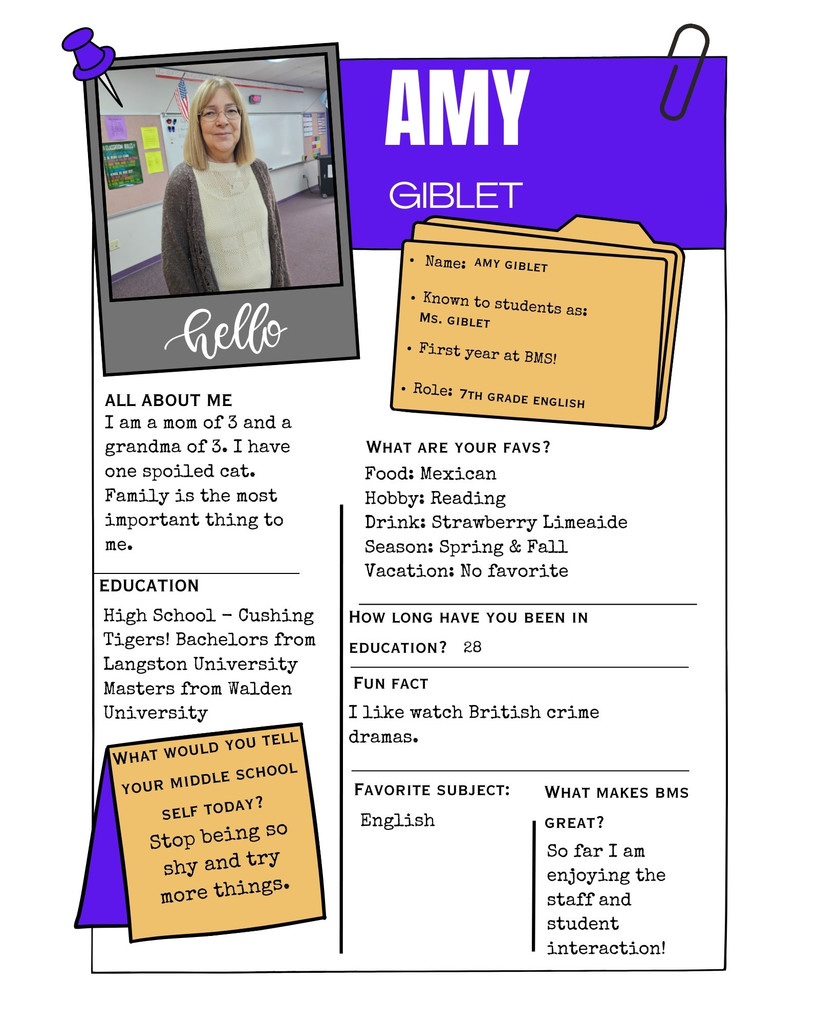 AMY
GIBLET
hello
• Name: AMY GIBLET
• Known to students as:
MS. GIBLET
• First year at BMS!
• Role: 7TH GRADE ENGLISH
ALL ABOUT ME
I am a mom of 3 and a
grandma of 3. I have
one spoiled cat.
Family is the most
important thing to
me.
EDUCATION
High School - Cushing
Tigers! Bachelors from
Langston University
Masters from Walden
University
WHAT WOULD YOU TELL
YOUR MIDDLE SCHOOL
SELF TODAY?
Stop being so
shy and try
more things.
WHAT ARE YOUR FAVS?
Food: Mexican
Hobby: Reading
Drink: Strawberry Limeaide
Season: Spring & Fall
Vacation: No favorite
HOW LONG HAVE YOU BEEN IN
EDUCATION? 28
FUN FACT
I like watch British crime
dramas.
FAVORITE SUBJECT:
English
WHAT MAKES BMS
GREAT?
So far I am
enjoying the
staff and
student
interaction!